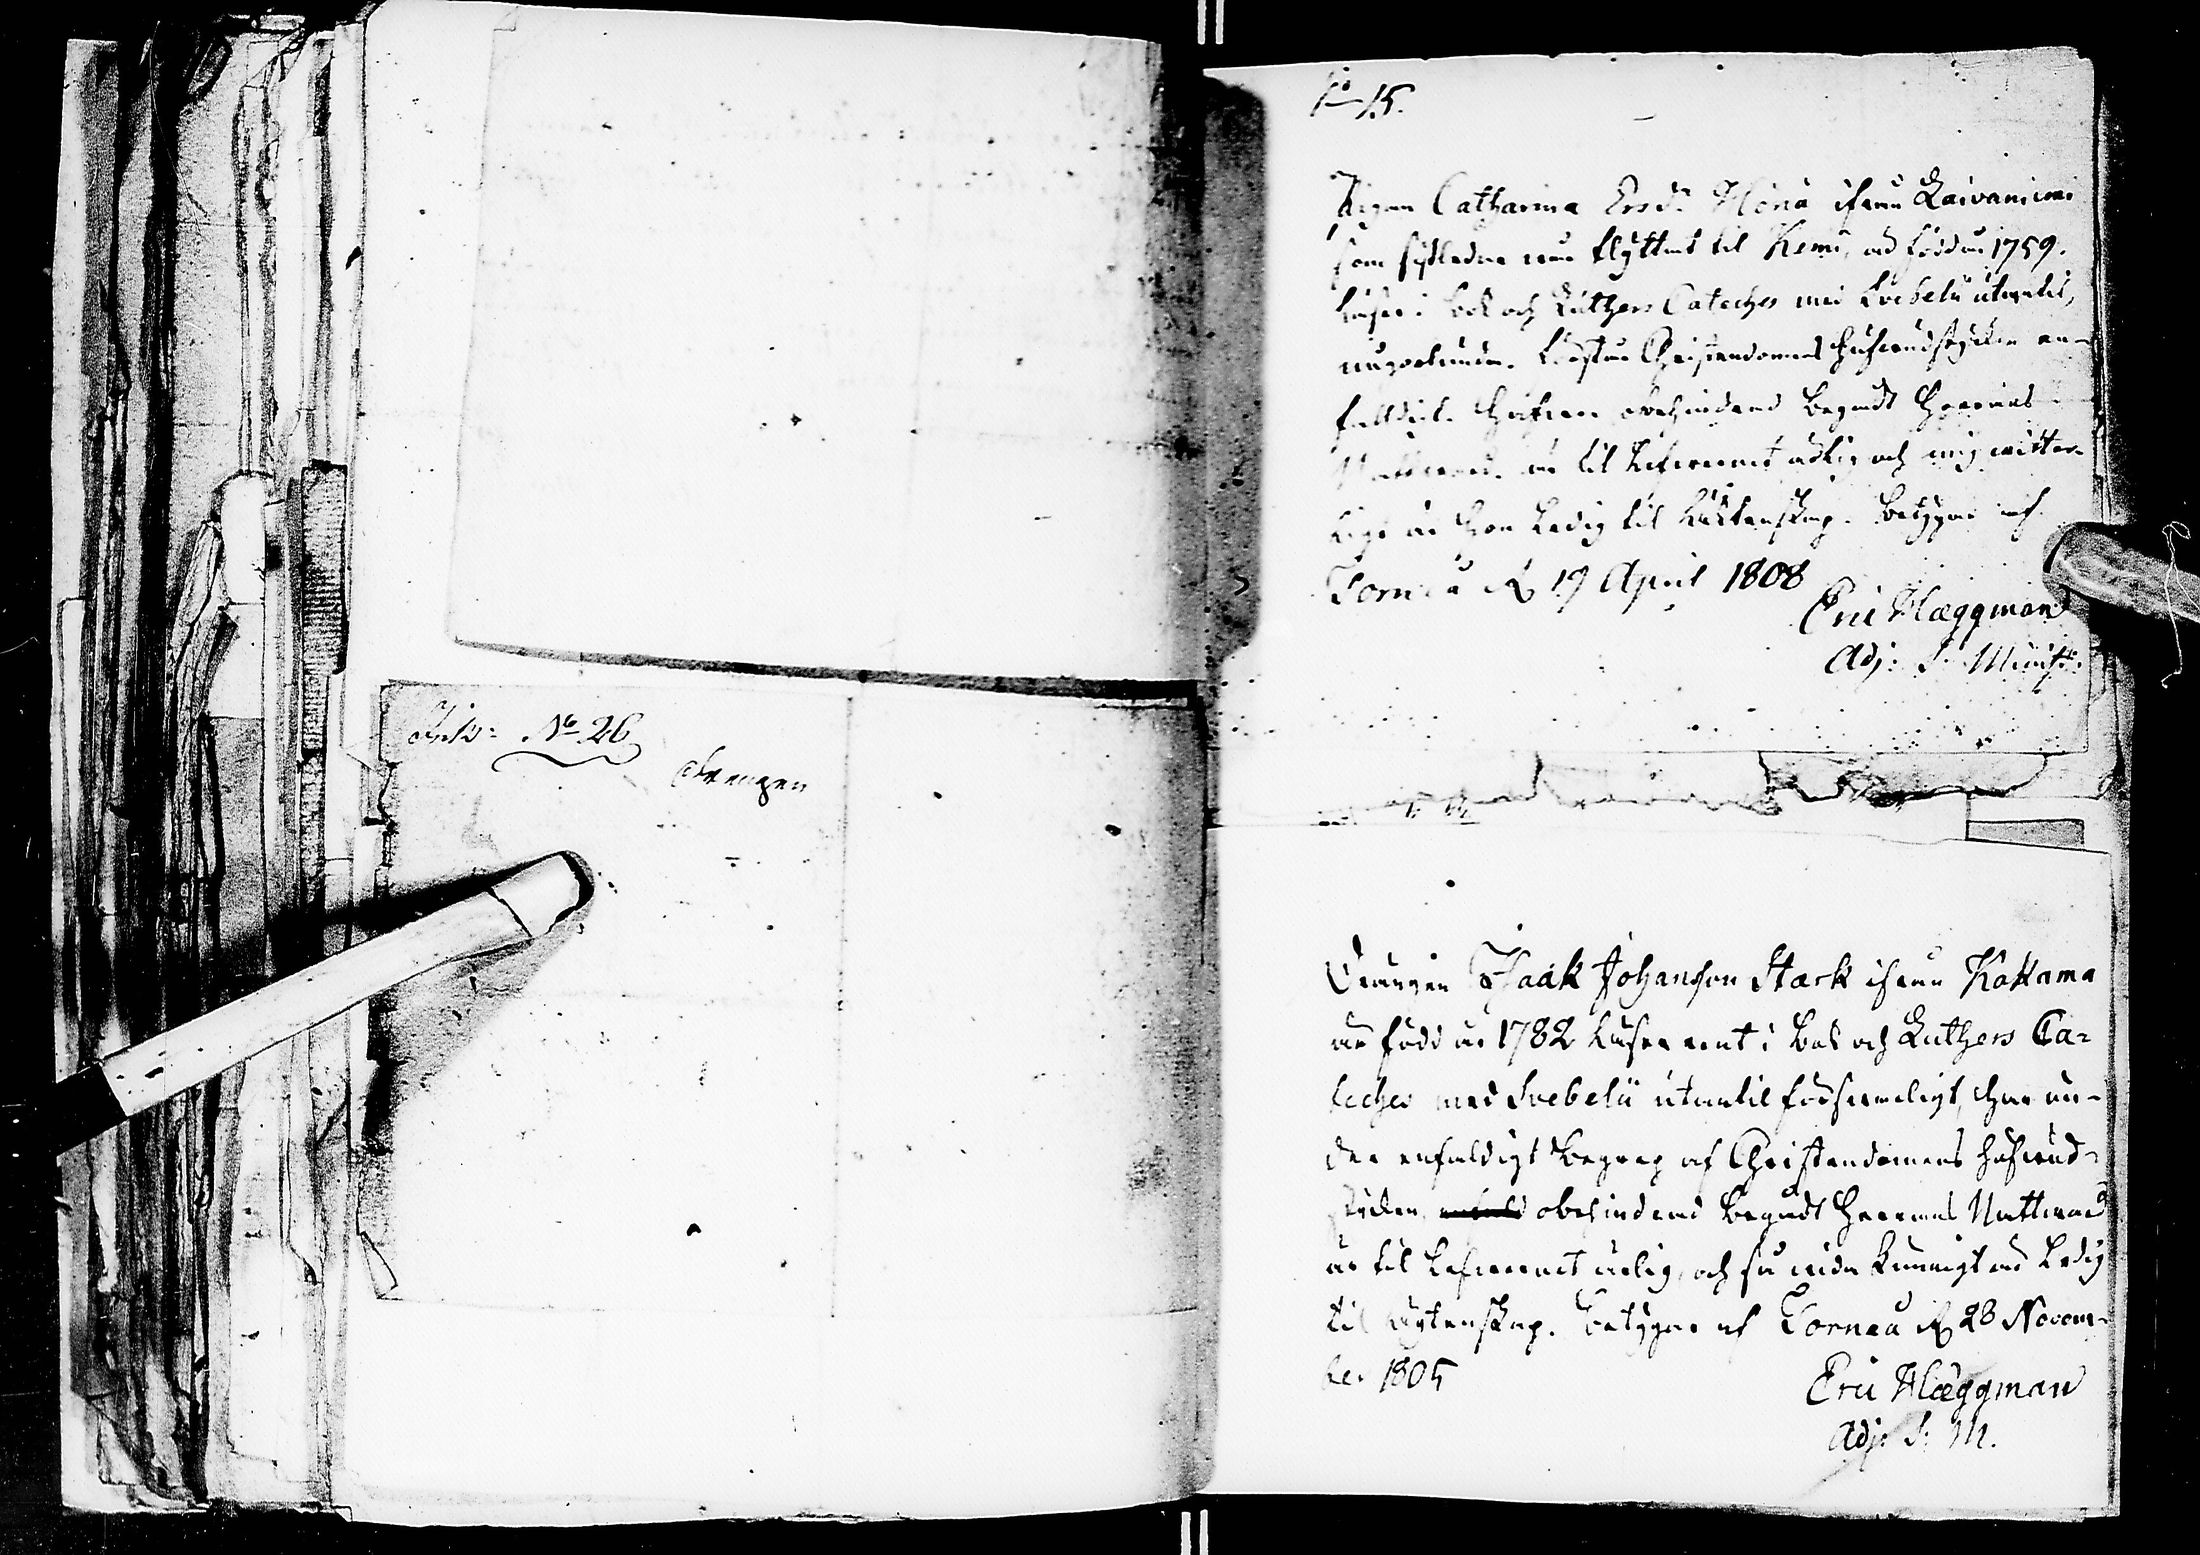 Ink: No 26
Drengen
No 15.
Pigan Catharina Ersd:r ifrån Laivaniemi
som sistledne flyttat til Kemi, är född år 1759.
Läser i bok och Luthers Cateches med Svebelii utantil,
någorlunda. Förstår Christendomens hufvudstycken en-
faldigt. Har obehindrad begådt Herrans
Nattvard. är til lefvernet ärlig och mig vitter-
ligt är hon ledig til Ächtenskap. Betygar af
Torneå d. 19 April 1808
Eric Hæggman
Adj: S: Minist:
Drängen Isaak Johansson Stark ifrån Kakama
är född år 1782 Läser rent i bok och Luthers Ca-
teches med Svebelii utantil försvarligt, har un-
der enfaldigt begrep af Christendomens hufvud-
stycken, obehindrad begådt Herrans Nattvard
är til lefvernet ärlig, och så vida kunnigt är ledig
til ägtenskap. Betygar af Torneå d. 28 Novem-
ber 1805
Eric Hæggman
Adj: S: M.